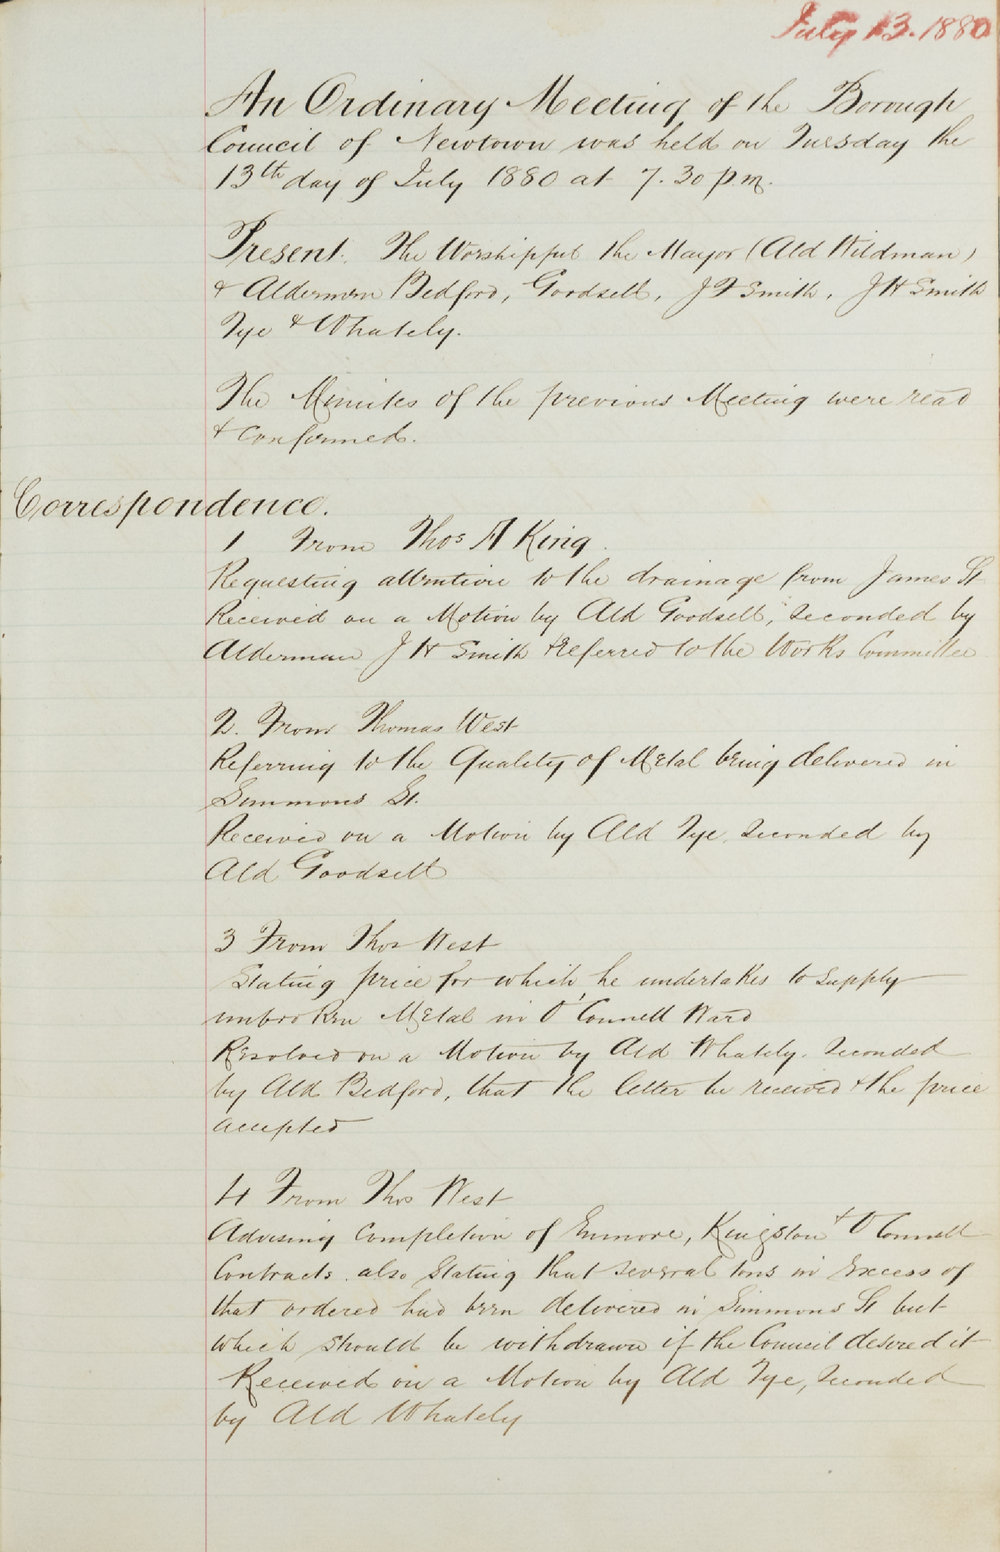 July 13. 1880
An Ordinary Meeting of the Borough
Council of Newtown was held on Tuesday the
13th day of July 1880 at 7.30 p.m.
Present. The Worshipful the Mayor (Ald Wildman)
& Aldermen Bedford, Goodsell, J F Smith, J H Smith
Tye & Whately.
The Minutes of the previous Meeting were read
& confirmed.
Correspondence.
1 From Thos A King.
Requesting attention to the drainage from James St
Received on a Motion by Ald Goodsell, seconded by
Alderman J H Smith & Referred to the Works Committee
2. From Thomas West
Referring to the Quality of Metal being delivered in
Simmons St.
Received on a Motion by Ald Tye, seconded by
Ald Goodsell
3 From Thos West
Stating price for which he undertakes to supply
unbroken Metal in O'Connell Ward
Resolved on a Motion by Ald Whately. Seconded
by Ald Bedford, that the letter be received & the price
accepted
4 From Thos West
Advising completion of Enmore, Kingston & O'Connell
Contracts. also stating that several tons in excess of
that ordered had been delivered in Simmons St but
which should be withdrawn if the Council desired it
Received on a Motion by Ald Tye, seconded
by Ald Whately